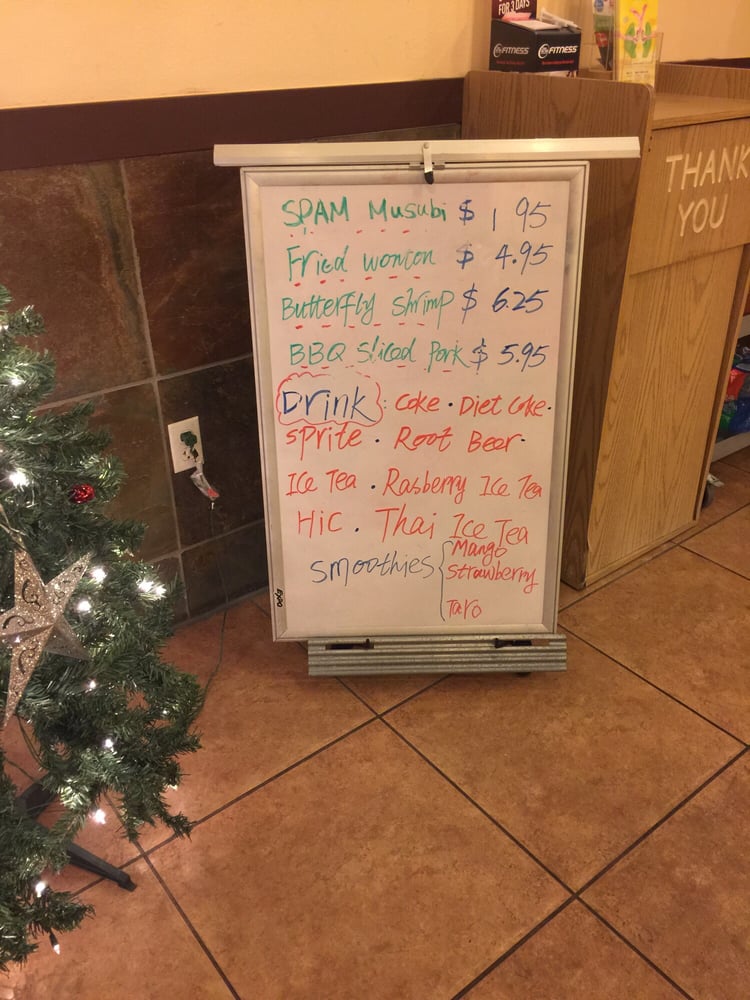 FOR 3 DAYS
FITNESS
FITNESS
THANK
YOU
SPAM Musubi $ 1 95
Fried wonton $ 4.95
Butterfly shrimp $ 6.25
BBQ Sliced Pork $ 5.95
Drink : Coke · Diet Coke ·
Sprite · Root Beer ·
Ice Tea · Rasberry Ice Tea
Hic · Thai Ice Tea
Smoothies { Mango
Strawberry
Taro